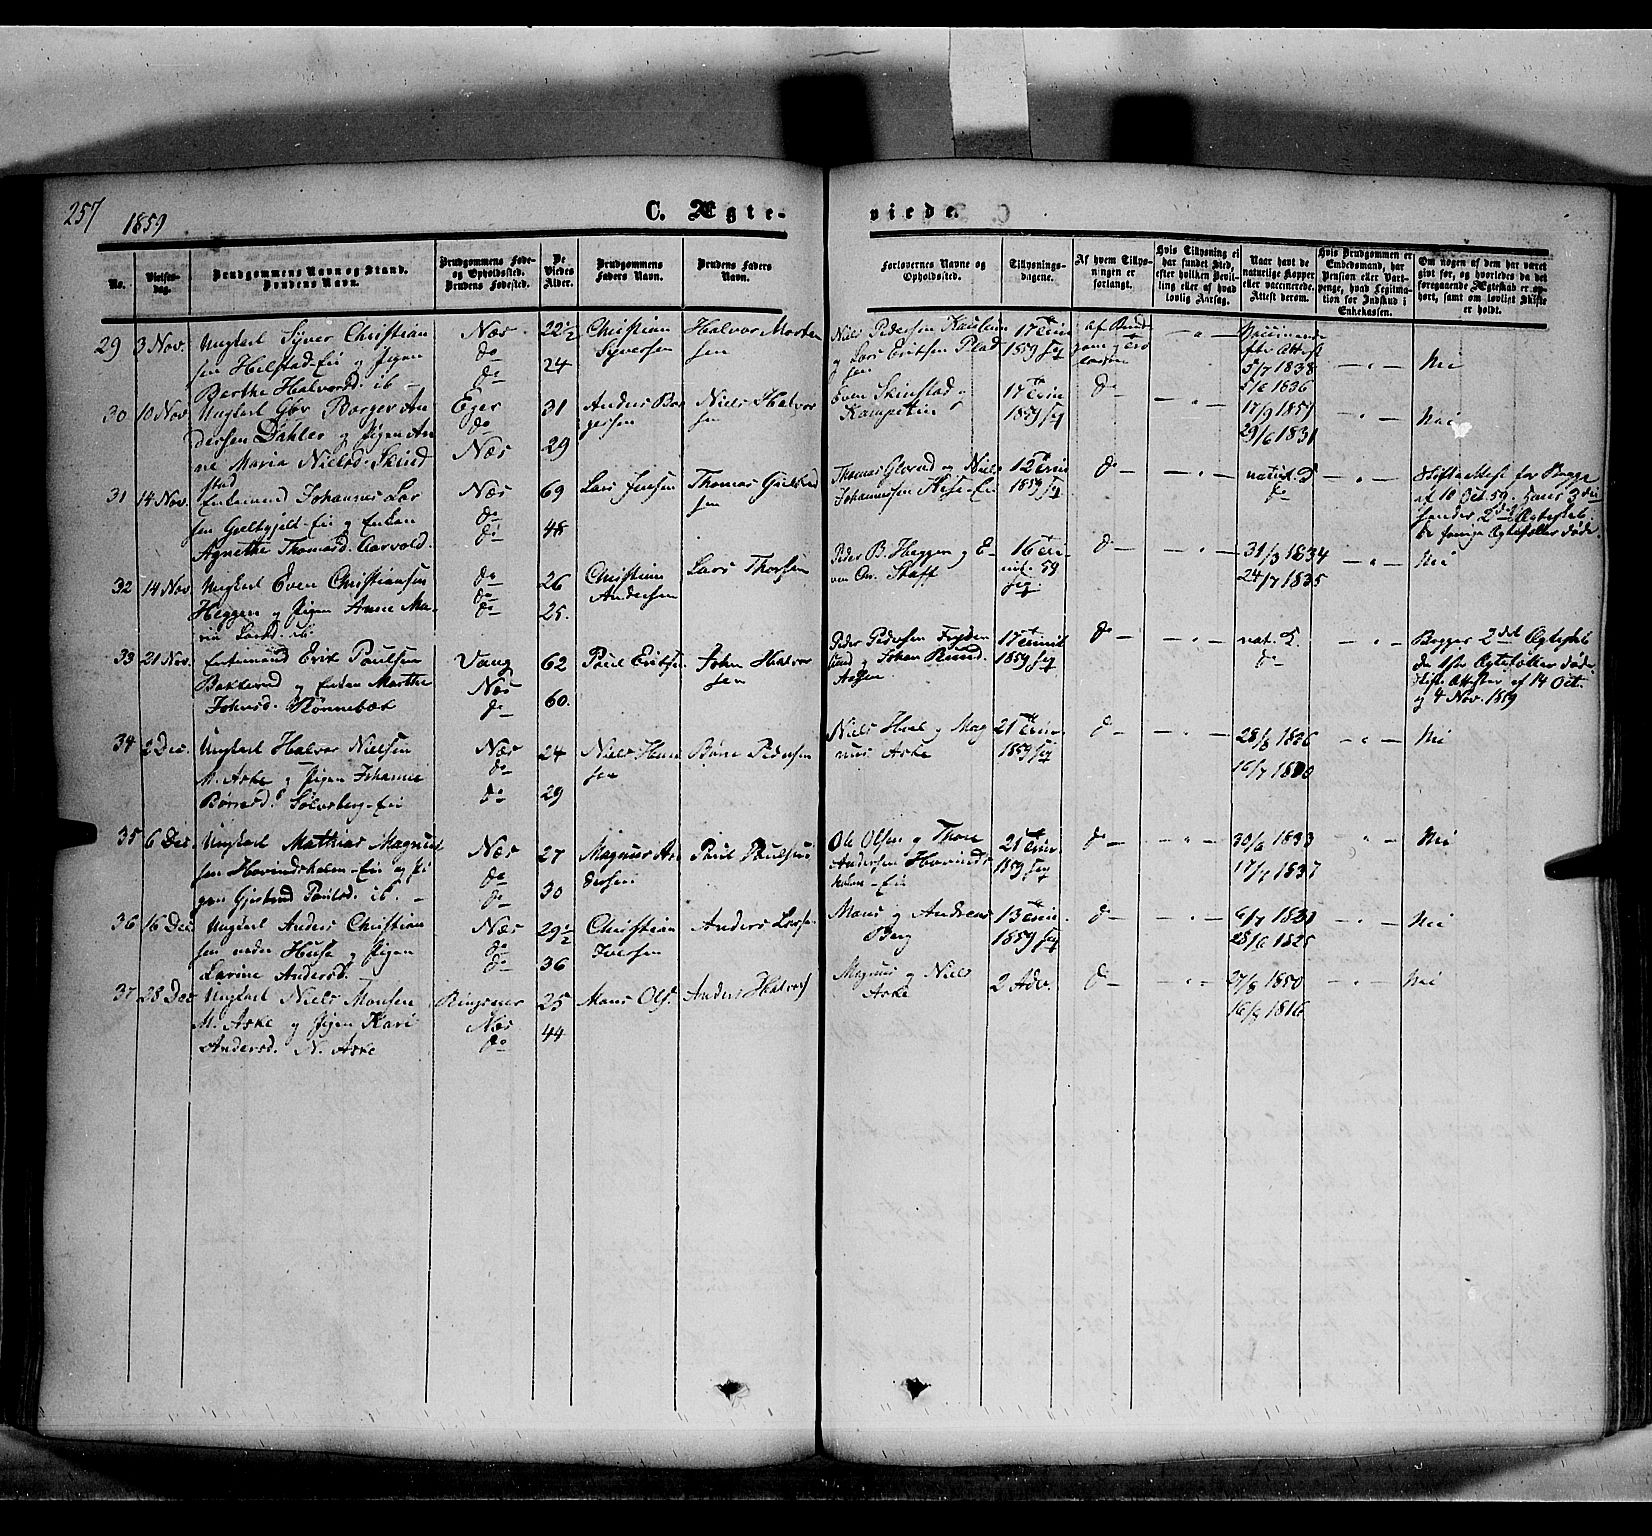 257
1859
C. Ægte-
viede.
No.
Vielses-
dag.
Brudgommens Navn og Stand.
Brudens Navn.
Brudgommens Føde-
og Opholdssted.
Brudens Fødested.
De
Viedes
Alder.
Brudgommens
Faders Navn.
Brudens Faders
Navn.
Forlovernes Navne og
Opholdssted.
Tillysnings-
dagene.
Af hvem Tillys-
ningen er
forlangt.
Hvis Tillysning ei
har fundet Sted,
efter hvilken Bevil-
ling eller af hvad
lovlig Aarsag.
Naar havt de
naturlige Kopper
eller vaccinerede.
Attest derom.
Hvis Brudgommen er
Embedsmand, har
Pension eller Vart-
penge, hvad Legitima-
tion for Indskud i
Enkekassen.
Om nogen af dem har været
gift før, og hvorledes da det
foregaaende Ægteskab er op-
hørt, samt om lovligt Skifte
er holdt.
29 3 Nov. Ungkarl Syver Christian
sen Helstad-Eie og Pigen
Berthe Halvorsd. ib -
Næs
do
do
22½
24
Christian
Syversen
Halvor Morten
sen
Niels Pedersen
og Lars Eriksen
17 Trin
1859 flg
af Brud
gom og
5/7 1838
1836
Nei
30 10 Nov. Ungkarl Borger An
dersen Dahler og Pigen An
ne Maria Nielsd. Skind
stad
Eger
do
Næs
31
29
Anders Bor
gersen
Niels Halvor
sen
Even Skinstad
17 Trin
1859 flg
do
17/9 1857
29/6 1831
Nei
31 14 Nov. Enkemand Johannes Lar
sen og Enken
Agnethe Thomasd. Aarvold
Næs
do
do
69
48
Lars Jensen
Thomas
sen
Thomas og Niels
Johannesen
12 Trin
1859 flg
do
naturl.
do
Skifteattest for Begge
af 10 Oct. 59. Hans 3die
hendes 2det Ægteskab
De forrige Ægtefolk døde.
32 14 Nov. Ungkarl Even Christiansen
Heggen og Pigen Anne Ma-
ria Larsd. ib.
do
do
do
26
25.
Christian
Andersen
Lars Thorsen
Peder B. Heggen og E-
16 Tri-
nit. 59
flg
do
31/3 1834
24/7 1835
Nei
33 21 Nov. Enkemand Erik Paulsen
Bakkerud og Enken Marthe
Johnsd.
Vang
Næs
do
62
60.
Paul Eriksen
John Halvor
sen
Peder Pedersen
og Johan
17 Trinit
1859 flg
do
nat.
do
Begges 2det Ægteskab
de 1ste Ægtefolk døde
Skifte Attester af 14 Oct.
og 4 Nov. 1859
34 2 Dec. Ungkarl Halvor Nielsen
N. Aske og Pigen Johanne
Børresd. Sølvsberg-Eie
Næs
do
do
24
29
Niels
sen
Børre Pedersen
Niels og Mag
nus Aske
21 Trin
1859 flg
do
28/8
16/7
Nei
35 6 Dec. Ungkarl Mathias Magnus
sen Hovindsholm-Eie og Pi
gen Gjertrud Paulsd. ib. -
Næs
do
do
27
30
Magnus An
dersen
Paul Paulsen
Ole Olsen og Thore
Andersen Hovinds
holm-Eie
21 Trin
1859 flg
do
30/6 1833
17/7 1837
Nei
36 16 Dec. Ungkarl Anders Christian
sen neder Huse og Pigen
Larine Andersd.
Næs
do
do
29½
36
Christian
Iversen
Anders Larsen
Mons og Andreas
Berg
13 Trin.
1859 flg
do
6/7
28/6 1825
Nei
37 28 Dec. Ungkarl Niels Monsen
N. Aske og Pigen Kari
Andersd. N. Aske
Ringsaker
Næs
do
25
44
Mons Ols.
Anders Halvors
Magnus og Niels
Aske
2 Adv.
do
27/8 1850
16/9 1816
Nei